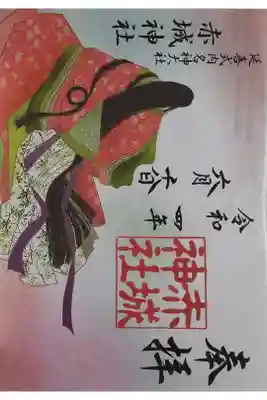 奉拝
赤城神社
令和四年
六月十八日
延喜式内名神大社
赤城神社